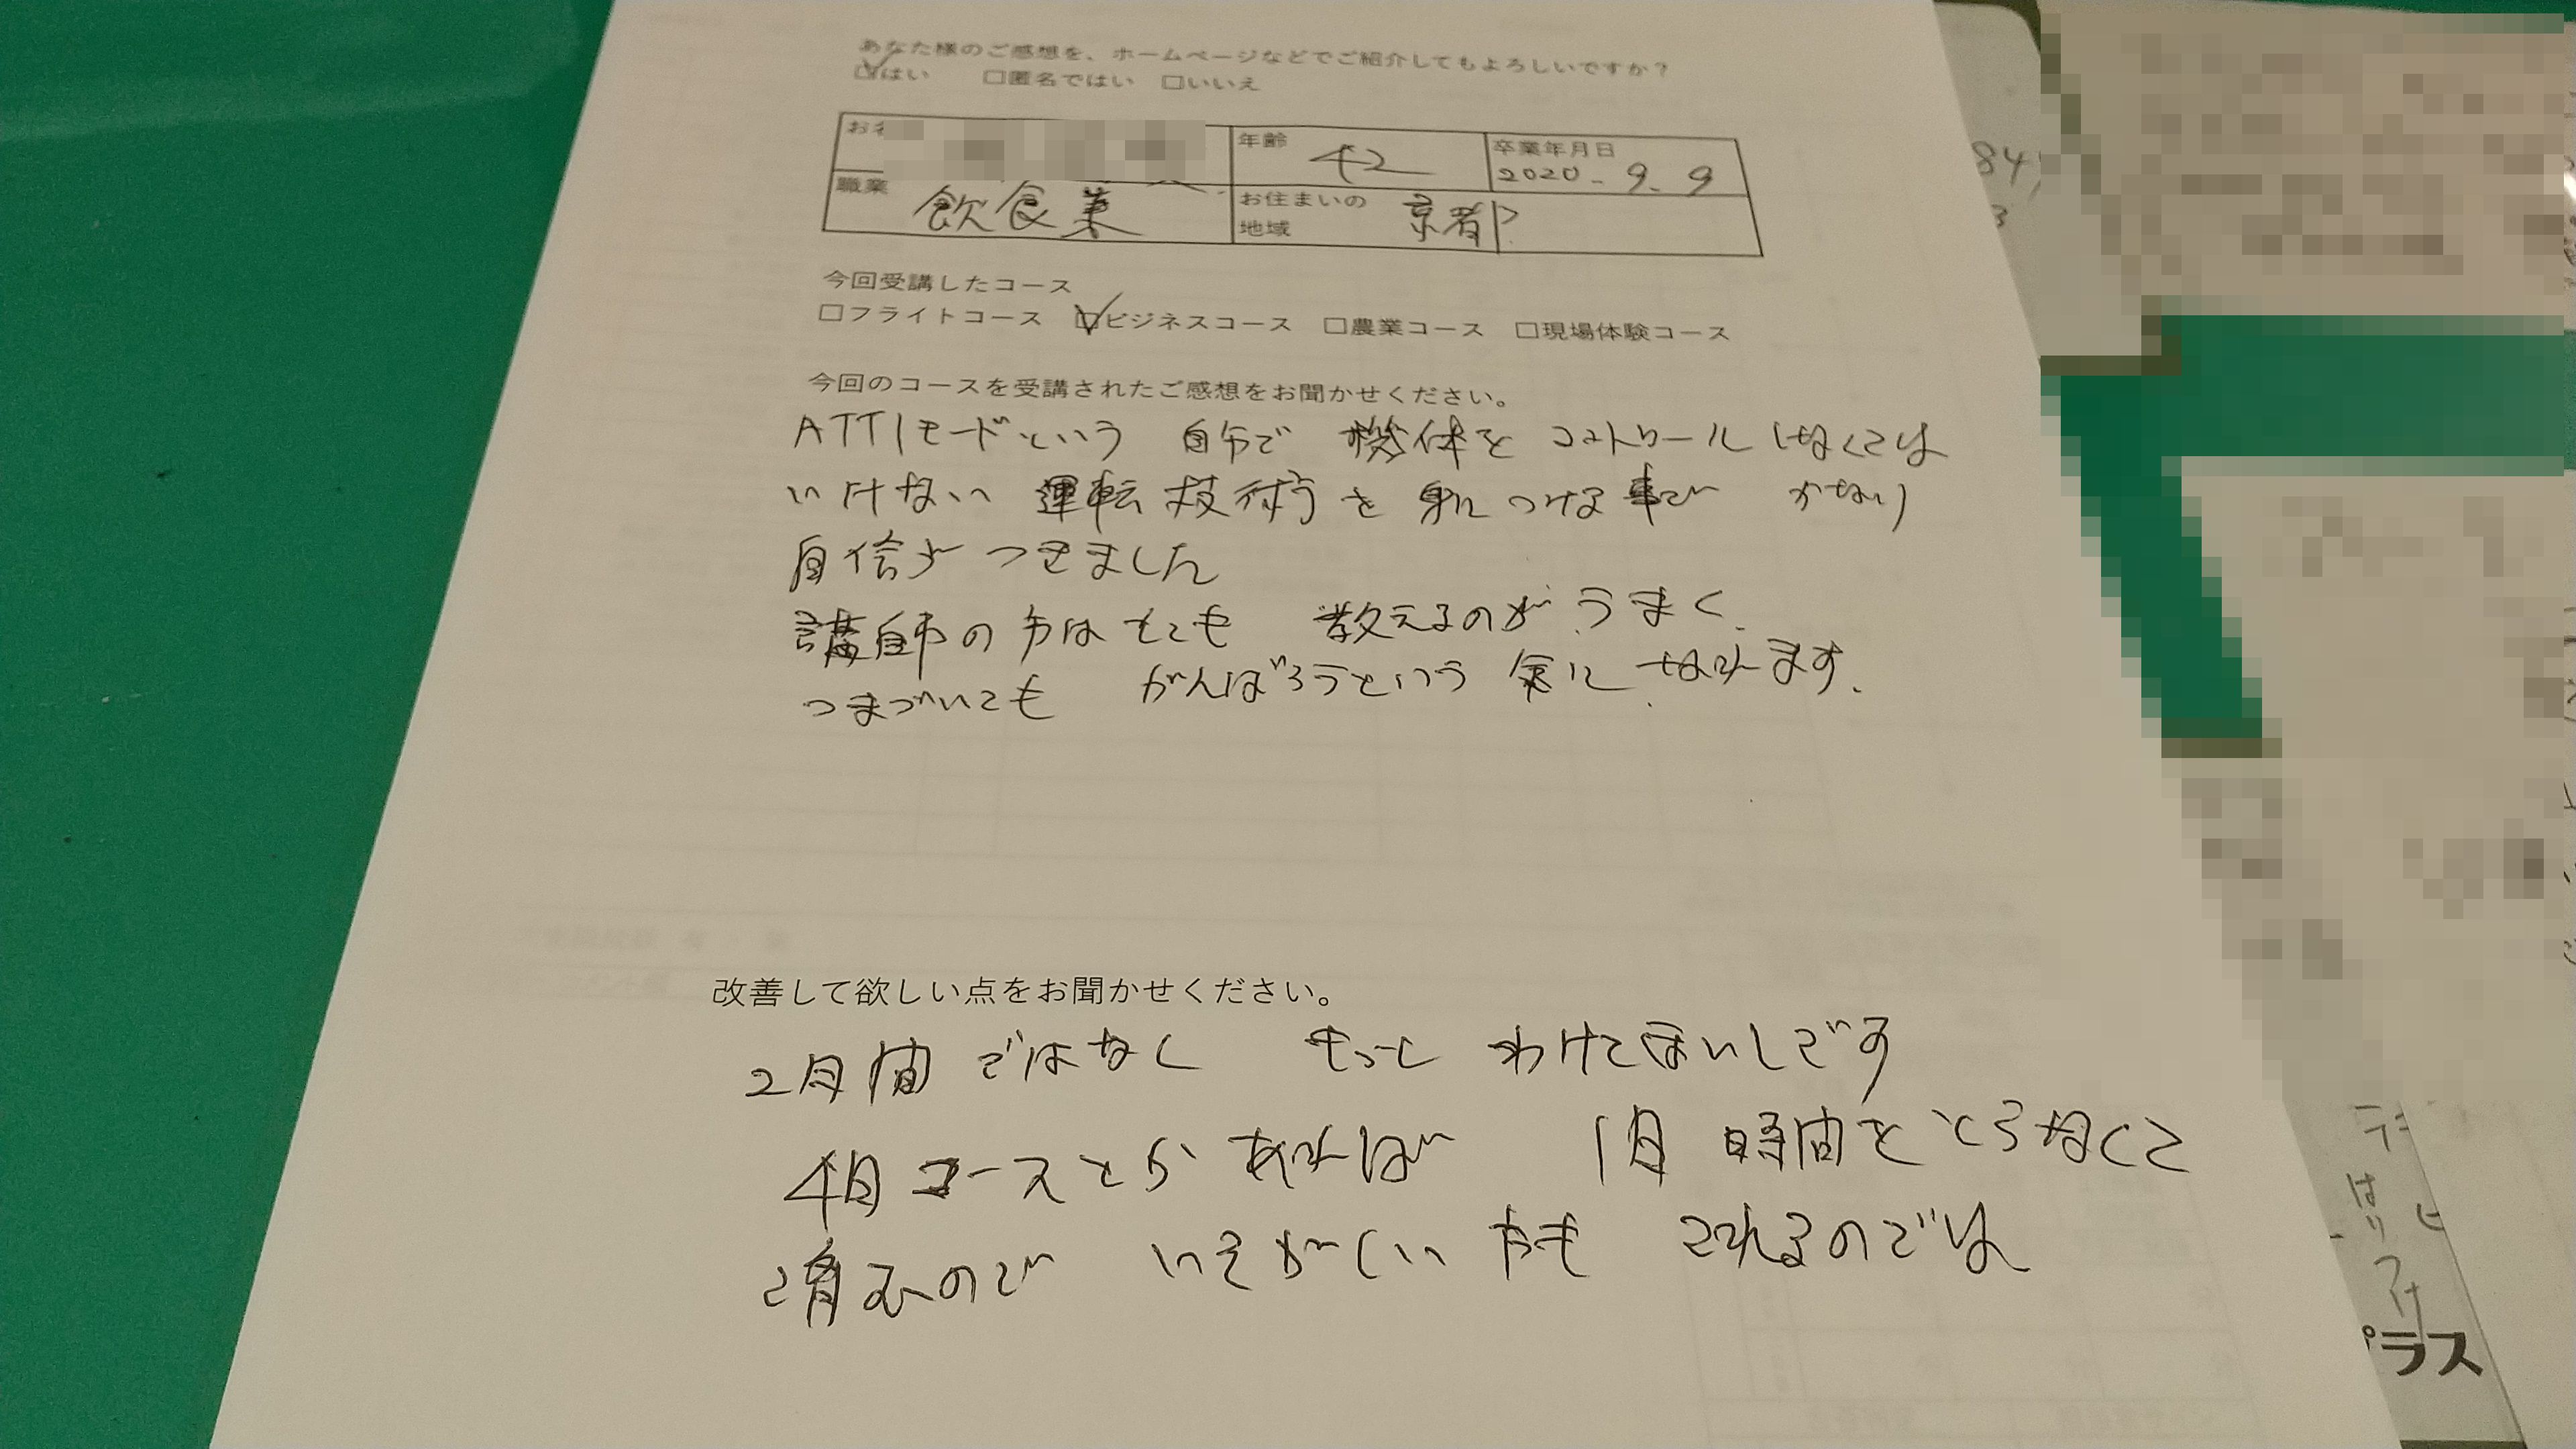 あなた様のご感想を、ホームページなどでご紹介してもよろしいですか？
☑はい □匿名ではい □いいえ
お名
年齢 42
卒業年月日 2020.9.9
職業 飲食業
お住まいの地域 京都
今回受講したコース
□フライトコース ☑ビジネスコース □農業コース □現場体験コース
今回のコースを受講されたご感想をお聞かせください。
ATTIモードという 自分で 機体を コントロールしなくては
いけない 運転技術を 身につける事で かなり
自信がつきました
講師の方はとても 教えるのが うまく
つまづいても がんばろうという 気に なれます.
改善して欲しい点をお聞かせください。
2日間ではなく もっと わけてほいしです
4日コースとか あれば 1日 時間をとらなくて
済むので いそがしい 方も これるのでは
はりつけ
プラス